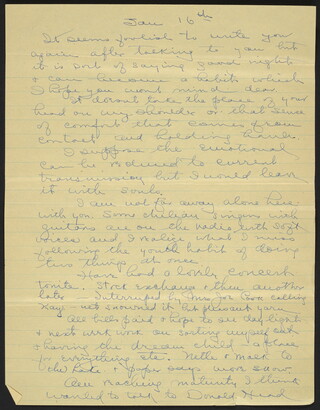 Jan 16th
It seems foolish to write you
again after talking to you but
it is sort of saying good night
& can become a habit which
I hope you won't mind dear.
It doesn't take the place of your
head on my shoulder or that sense
of comfort that comes from
contact and holding hands.
I suppose the emotional
can be reduced to current
transmission but I would leave
it with souls.
I am not far away alone here
with you. Some singing with
guitars are on the radio with soft
voices and I realize what I miss
following the youth habit of doing
two things at once.
Have had a lovely concert
tonite. Stock exchange & then another
later Interrupted by for calling
Kay - not snowed in but pleasant yarn
All bills paid & hope to see daylight
& next work week on sorting myself out
& having the dream child a place
for everything etc. Nellie & Mack to
the Lake & paper says more snow.
Clem reaching maturity I think
wanted to talk to Donald Head